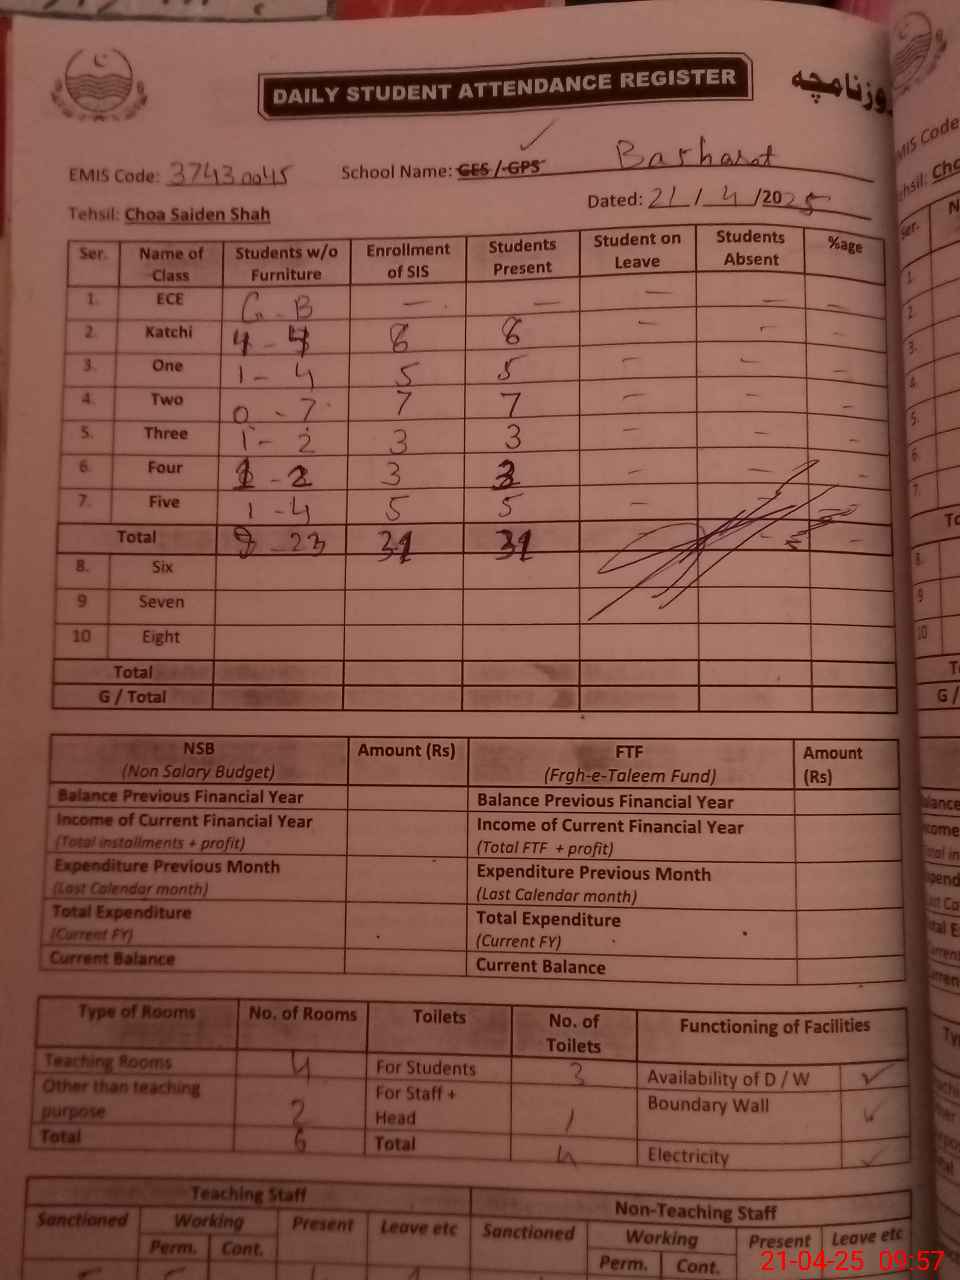 DAILY STUDENT ATTENDANCE REGISTER روزنامچہ
EMIS Code: 37430045 School Name: GES / GPS Basharat
Tehsil: Choa Saiden Shah Dated: 21 / 4 /2025
Ser. Name of Class Students w/o Furniture Enrollment of SIS Students Present Student on Leave Students Absent %age
1. ECE G - B — — — — —
2. Katchi 4 - 4 8 8 - - -
3. One 1 - 4 5 5 - - -
4. Two 0 - 7 7 7 - - -
5. Three 1 - 2 3 3 - - -
6. Four 1 - 2 3 3 - - -
7. Five 1 - 4 5 5 - - -
Total 8 - 23 31 31 - - -
8. Six
9 Seven
10 Eight
Total
G / Total
NSB (Non Salary Budget) Amount (Rs) FTF (Frgh-e-Taleem Fund) Amount (Rs)
Balance Previous Financial Year Balance Previous Financial Year
Income of Current Financial Year (Total installments + profit) Income of Current Financial Year (Total FTF + profit)
Expenditure Previous Month (Last Calendar month) Expenditure Previous Month (Last Calendar month)
Total Expenditure (Current FY) Total Expenditure (Current FY)
Current Balance Current Balance
Type of Rooms No. of Rooms Toilets No. of Toilets Functioning of Facilities
Teaching Rooms 4 For Students 3 Availability of D / W ✓
Other than teaching purpose 2 For Staff + Head 1 Boundary Wall ✓
Total 6 Total 4 Electricity ✓
Teaching Staff Non-Teaching Staff
Sanctioned Working Present Leave etc Sanctioned Working Present Leave etc
Perm. Cont. Perm. Cont.
21-04-25 09:57